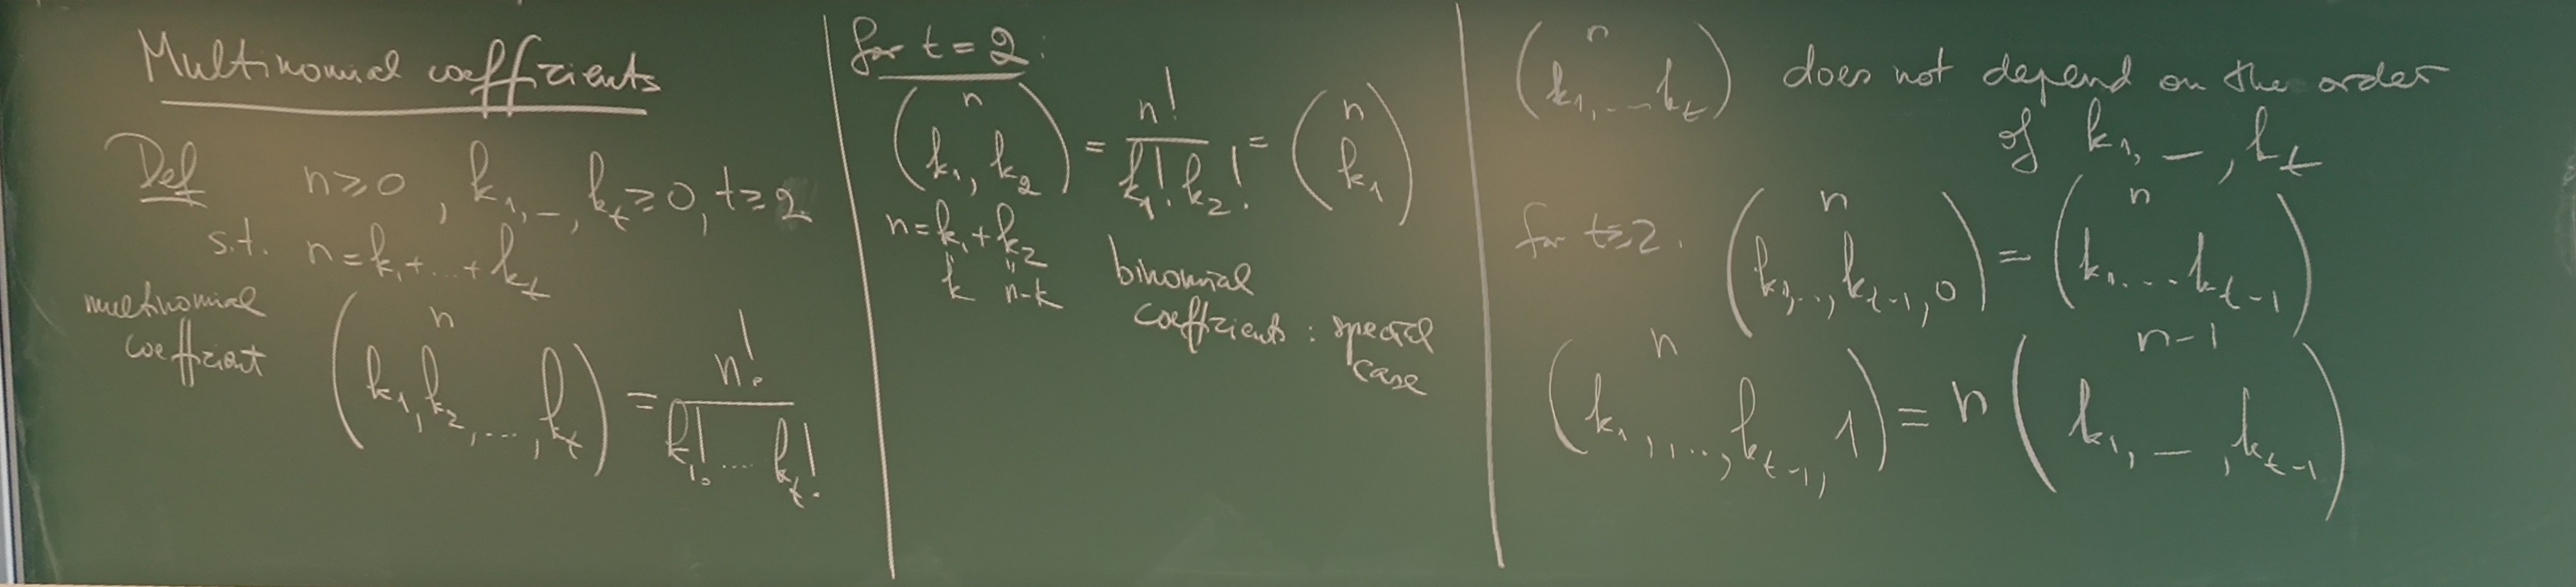 Multinomial coefficients
Def n ≥ 0, k₁, –, k_t ≥ 0, t ≥ 2
s.t. n = k₁ + ... + k_t
multinomial
coefficient (n / k₁, k₂, ..., k_t) = n! / k₁! .... k_t!
for t = 2:
(n / k₁, k₂) = n! / k₁! k₂! = (n / k₁)
n = k₁ + k₂
" "
k n-k
binomial
coefficients : special
case
(n / k₁, ... k_t) does not depend on the order
of k₁, –, k_t
for t ≥ 2. (n / k₁, .., k_{t-1}, 0) = (n / k₁ ... k_{t-1})
(n / k₁, , .., k_{t-1}, 1) = n (n-1 / k₁, –, k_{t-1})